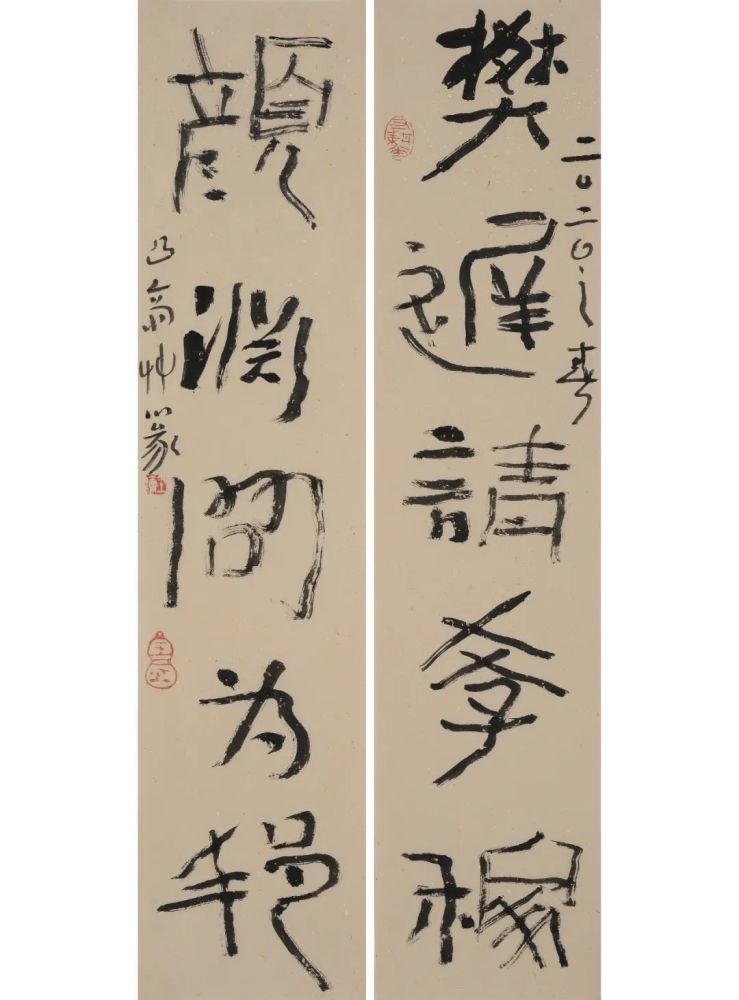 樊遲請學稼
二〇二〇之春
顏淵問為邦
艸篆